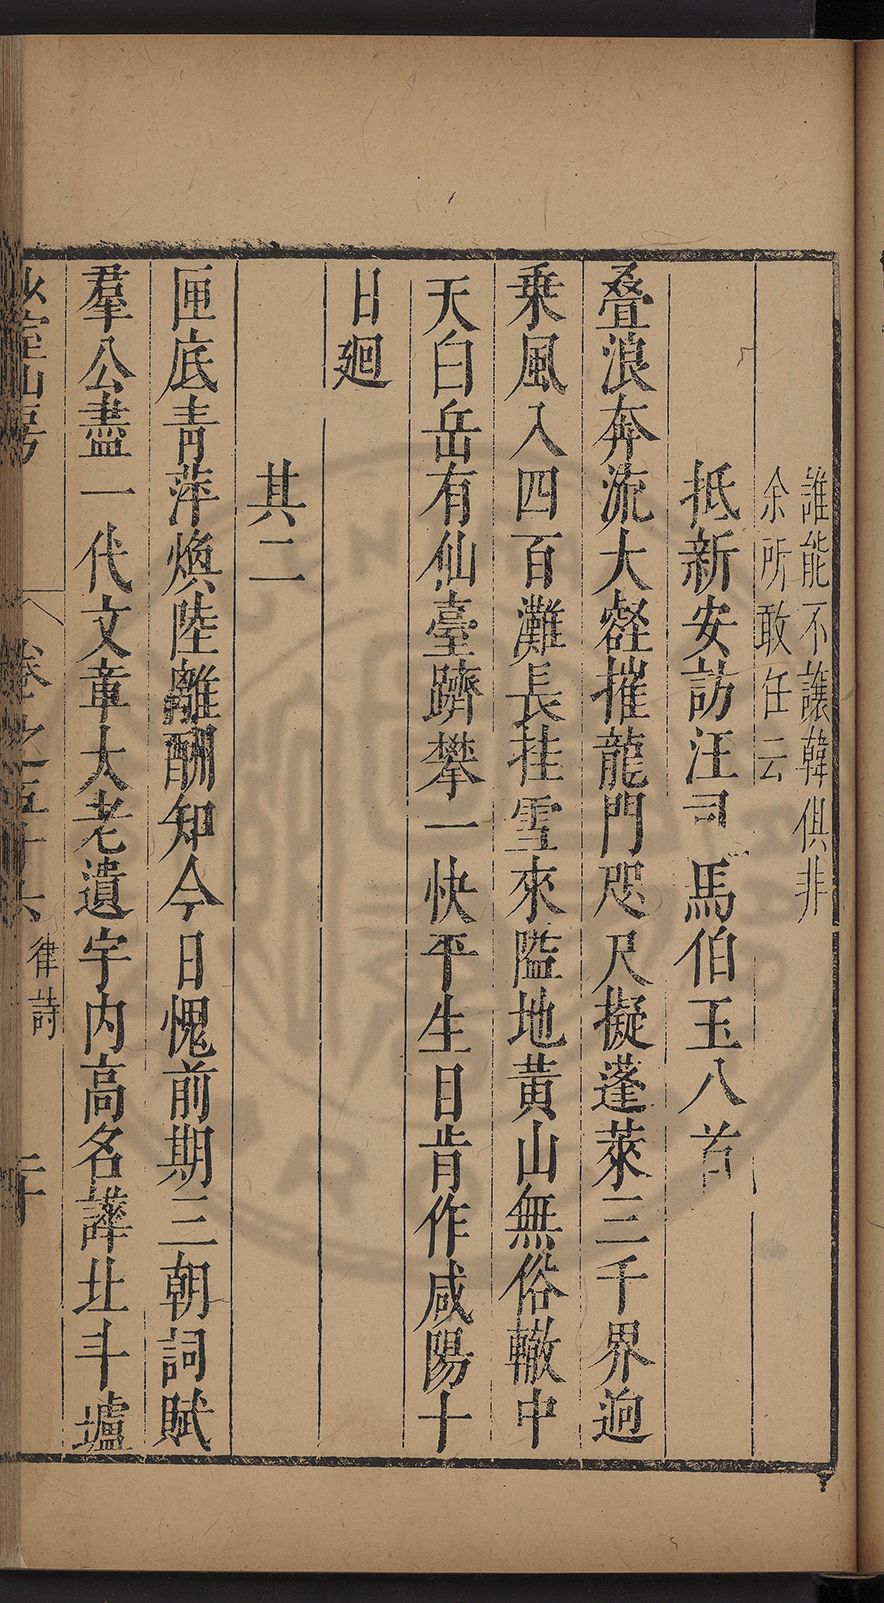 誰能不讓韓俱非
余所敢任云
抵新安訪汪司馬伯玉八首
叠浪奔流大壑摧龍門咫尺擬蓬萊三千界逈
乗風入四百灘長挂雪來隘地黃山無俗轍中
天白岳有仙臺躋攀一快平生目肯作咸陽十
日廻
其二
匣底青萍煥陸離酬知今日愧前期三朝詞賦
羣公盡一代文章大老遺宇内高名譁北斗壚
山房
卷之五十六
律詩